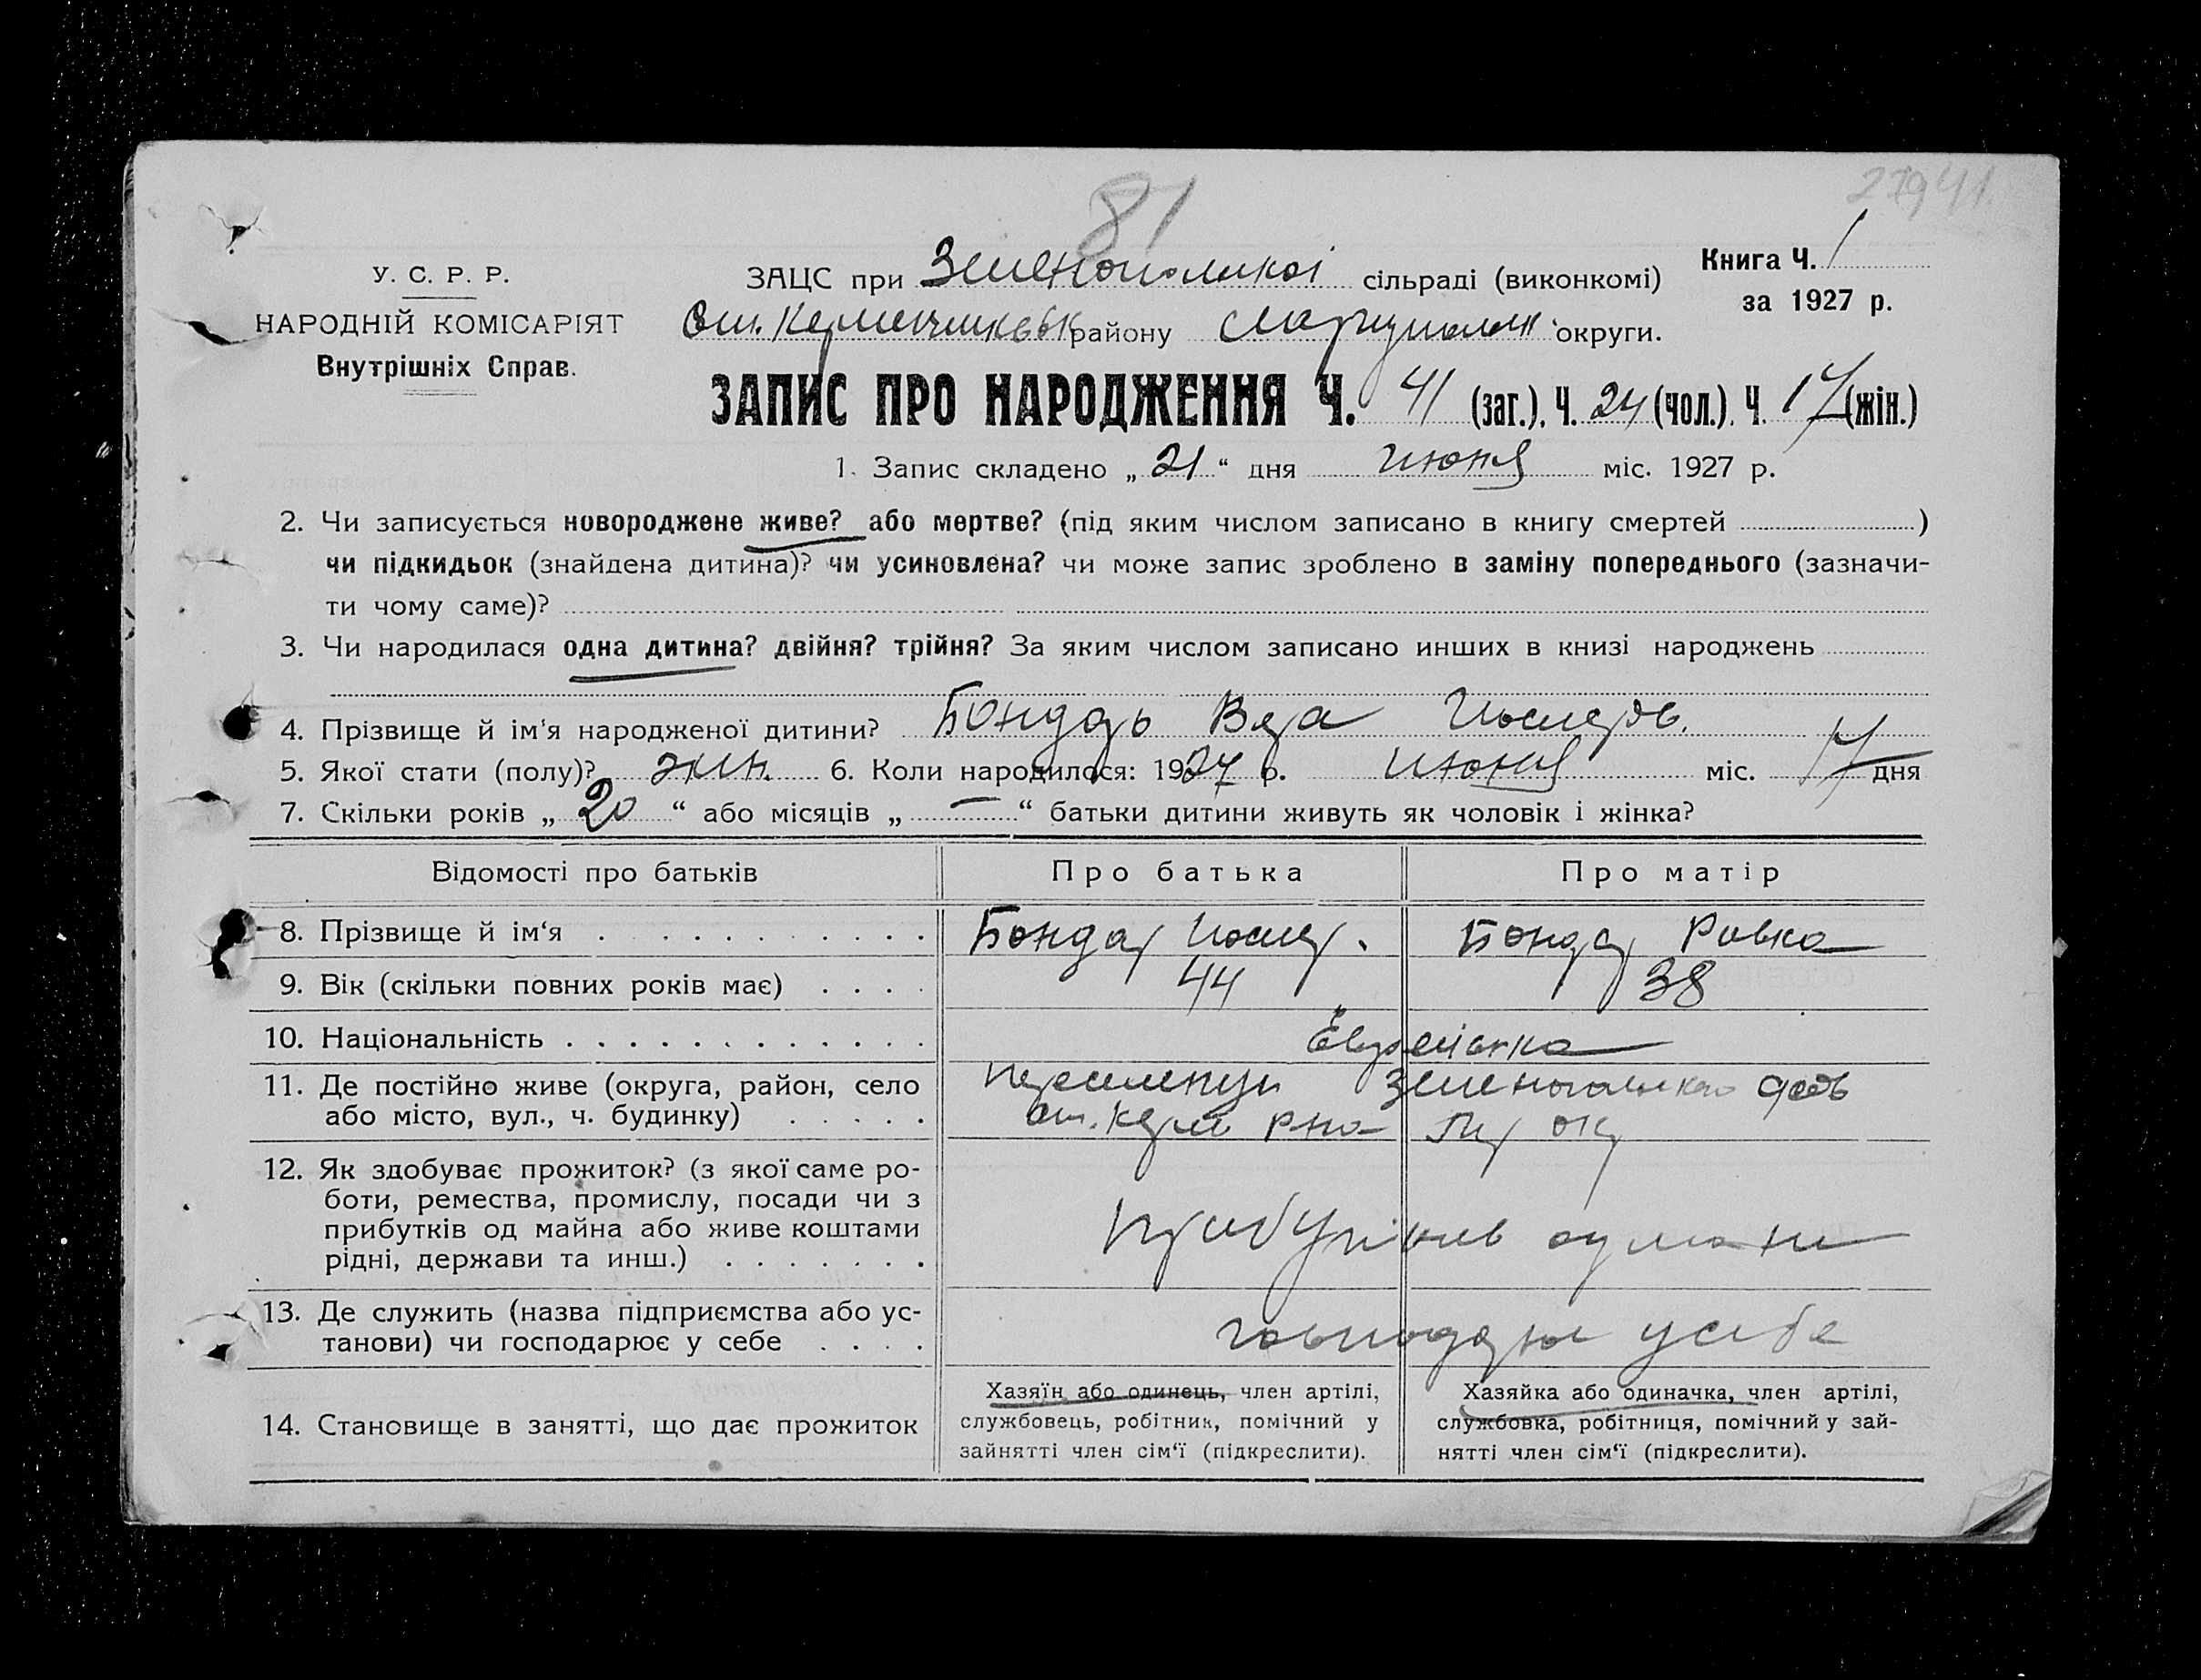 81
27941
У. С. Р. Р.
НАРОДНІЙ КОМІСАРІЯТ
Внутрішніх Справ.
ЗАЦС при Зеленопольскої сільраді (виконкомі)
Ст. Керменчикськ району Маріупольск округи.
Книга Ч. 1
за 1927 р.
ЗАПИС ПРО НАРОДЖЕННЯ Ч. 41 (заг.), Ч. 24 (чол.), Ч. 17 (жін.)
1. Запис складено „ 21 “ дня июня міс. 1927 р.
2. Чи записується новороджене живе? або мертве? (під яким числом записано в книгу смертей )
чи підкидьок (знайдена дитина)? чи усиновлена? чи може запис зроблено в заміну попереднього (зазначи-
ти чому саме)?
3. Чи народилася одна дитина? двійня? трійня? За яким числом записано инших в книзі народжень
4. Прізвище й ім'я народженої дитини? Бондарь Вера
5. Якої стати (полу)? жін. 6. Коли народилося: 1927 р. июня міс. 17 дня
7. Скільки років „ 20 “ або місяців „ — “ батьки дитини живуть як чоловік і жінка?
Відомості про батьків Про батька Про матір
8. Прізвище й ім‘я Бондар Бондар Ривка
9. Вік (скільки повних років має) 44 38
10. Національність
11. Де постійно живе (округа, район, село
або місто, вул., ч. будинку) Ст. Керм р-на
12. Як здобуває прожиток? (з якої саме ро-
боти, ремества, промислу, посади чи з
прибутків од майна або живе коштами
рідні, держави та инш.)
13. Де служить (назва підприємства або ус-
танови) чи господарює у себе господарює у себе
14. Становище в занятті, що дає прожиток
Хазяїн або одинець, член артілі,
службовець, робітник, помічний у
зайнятті член сім‘ї (підкреслити).
Хазяйка або одиначка, член артілі,
службовка, робітниця, помічний у зай-
нятті член сім‘ї (підкреслити).